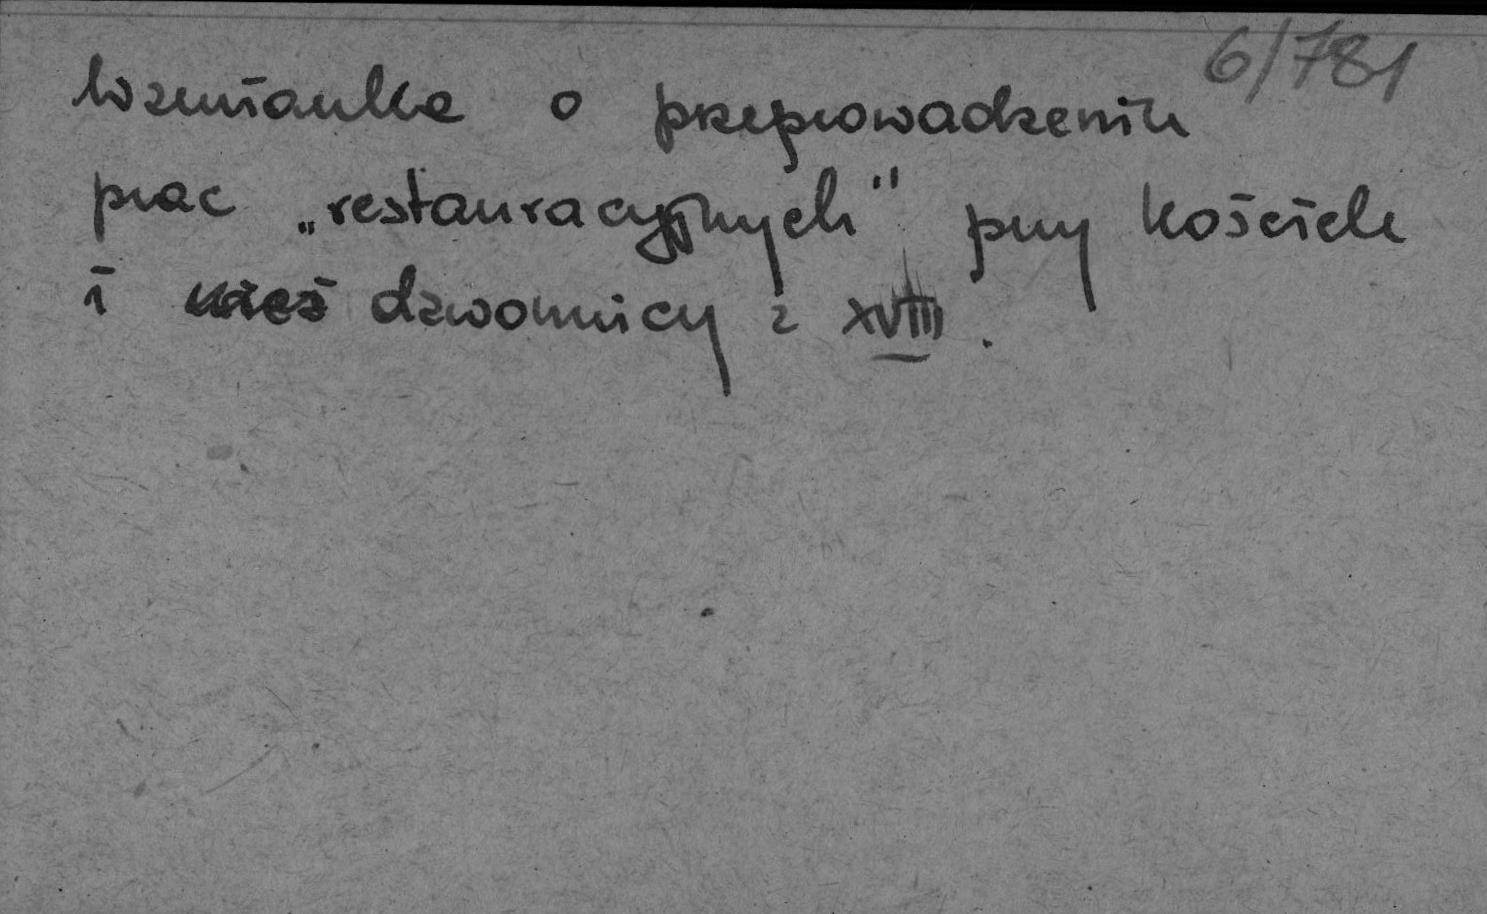 6/781
Wzmianka o przeprowadzeniu
prac „restauracyjnych" przy kościele
i dzwonnicy z XVIII.